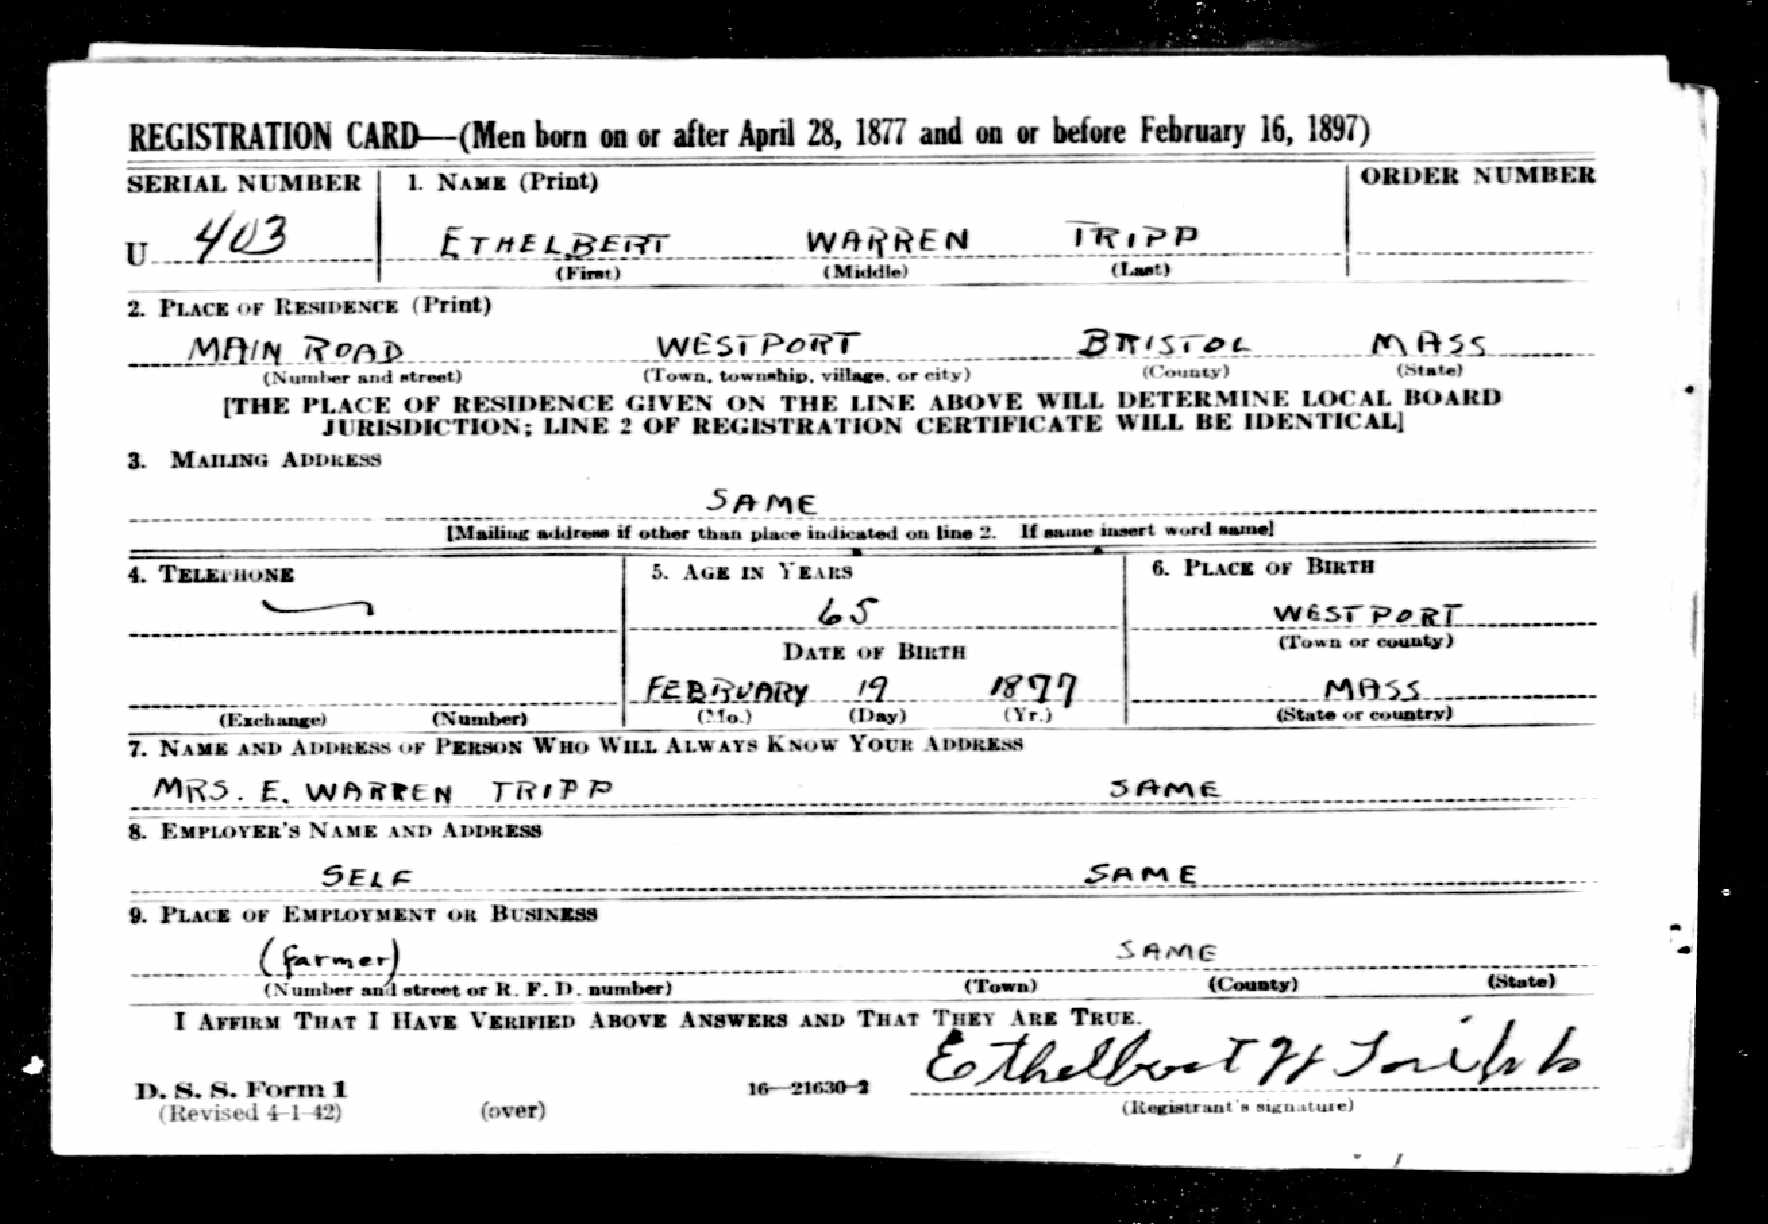 REGISTRATION CARD—(Men born on or after April 28, 1877 and on or before February 16, 1897)
SERIAL NUMBER 1. NAME (Print) ORDER NUMBER
U 403 ETHELBERT WARREN TRIPP
(First) (Middle) (Last)
2. PLACE OF RESIDENCE (Print)
MAIN ROAD WESTPORT BRISTOL MASS
(Number and street) (Town, township, village, or city) (County) (State)
[THE PLACE OF RESIDENCE GIVEN ON THE LINE ABOVE WILL DETERMINE LOCAL BOARD
JURISDICTION; LINE 2 OF REGISTRATION CERTIFICATE WILL BE IDENTICAL]
3. MAILING ADDRESS
SAME
[Mailing address if other than place indicated on line 2. If same insert word same]
4. TELEPHONE 5. AGE IN YEARS 6. PLACE OF BIRTH
65 WESTPORT
(Town or county)
DATE OF BIRTH
FEBRUARY 19 1877 MASS
(Exchange) (Number) (Mo.) (Day) (Yr.) (State or country)
7. NAME AND ADDRESS OF PERSON WHO WILL ALWAYS KNOW YOUR ADDRESS
MRS. E. WARREN TRIPP SAME
8. EMPLOYER'S NAME AND ADDRESS
SELF SAME
9. PLACE OF EMPLOYMENT OR BUSINESS
(farmer) SAME
(Number and street or R. F. D. number) (Town) (County) (State)
I AFFIRM THAT I HAVE VERIFIED ABOVE ANSWERS AND THAT THEY ARE TRUE.
Ethelbert W Tripp
D. S. S. Form 1 16—21630-2
(Revised 4-1-42) (over) (Registrant's signature)